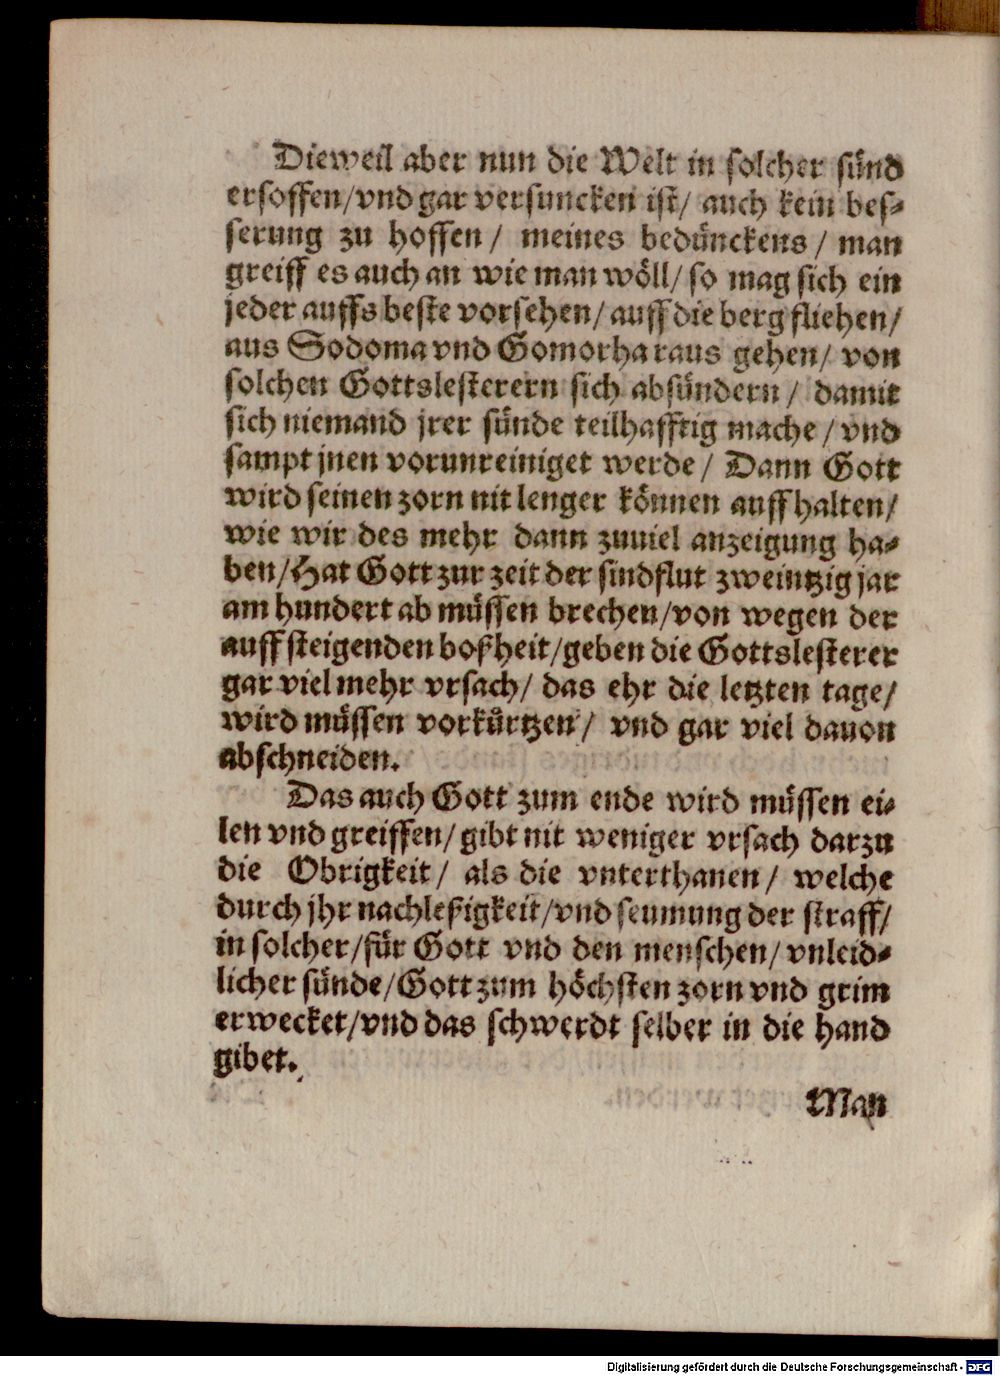 Dieweil aber nun die Welt in solcher sünd
ersoffen/vnd gar versuncken ist/ auch kein bes⸗
serung zu hoffen/ meines bedünckens/ man
greiff es auch an wie man wöll/ so mag sich ein
jeder auffs beste vorsehen/ auff die berg fliehen/
aus Sodoma vnd Gomorha raus gehen/ von
solchen Gottslesterern sich absündern/ damit
sich niemand jrer sünde teilhafftig mache/ vnd
sampt jnen vorunreiniget werde/ Dann Gott
wird seinen zorn nit lenger können auffhalten/
wie wir des mehr dann zuuiel anzeigung ha⸗
ben/Hat Gott zur zeit der sindflut zweintzig jar
am hundert ab müssen brechen/von wegen der
auffsteigenden boßheit/geben die Gottslesterer
gar viel mehr vrsach/ das ehr die letzten tage/
wird müssen vorkürtzen/ vnd gar viel dauon
abschneiden.
Das auch Gott zum ende wird müssen ei⸗
len vnd greiffen/ gibt nit weniger vrsach darzu
die Obrigkeit/ als die vnterthanen/ welche
durch jhr nachleßigkeit/vnd seumung der straff/
in solcher/für Gott vnd den menschen/ vnleid⸗
licher sünde/Gott zum höchsten zorn vnd grim
erwecket/vnd das schwerdt selber in die hand
gibet.
Man
Digitalisierung gefördert durch die Deutsche Forschungsgemeinschaft - DFG